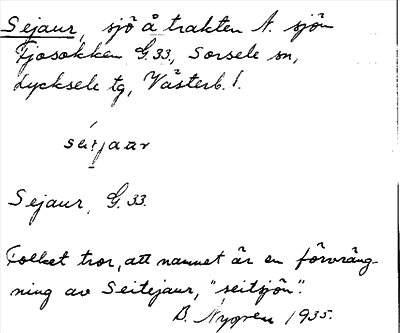 Sejaur, sjö å trakten N. sjön
Tjosokken G.33, Sorsele sn,
Lycksele tg, Västerb. l.
seijaar
Sejaur, G. 33.
Folket tror, att namnet är en förvräng-
ning av Seitejaur, "seitsjön".
B. Nygren 1935.